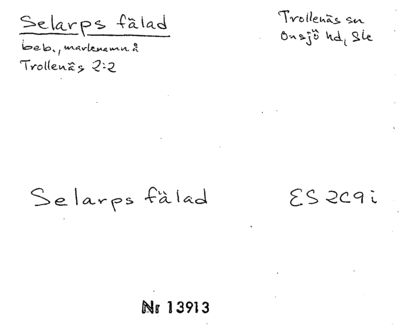 Selarps fälad
Trollenäs sn
beb., markenamn å
Onsjö hd, Ske
Trollenäs 2:2
Selarps fälad
ES 2C9i
Nr 13913